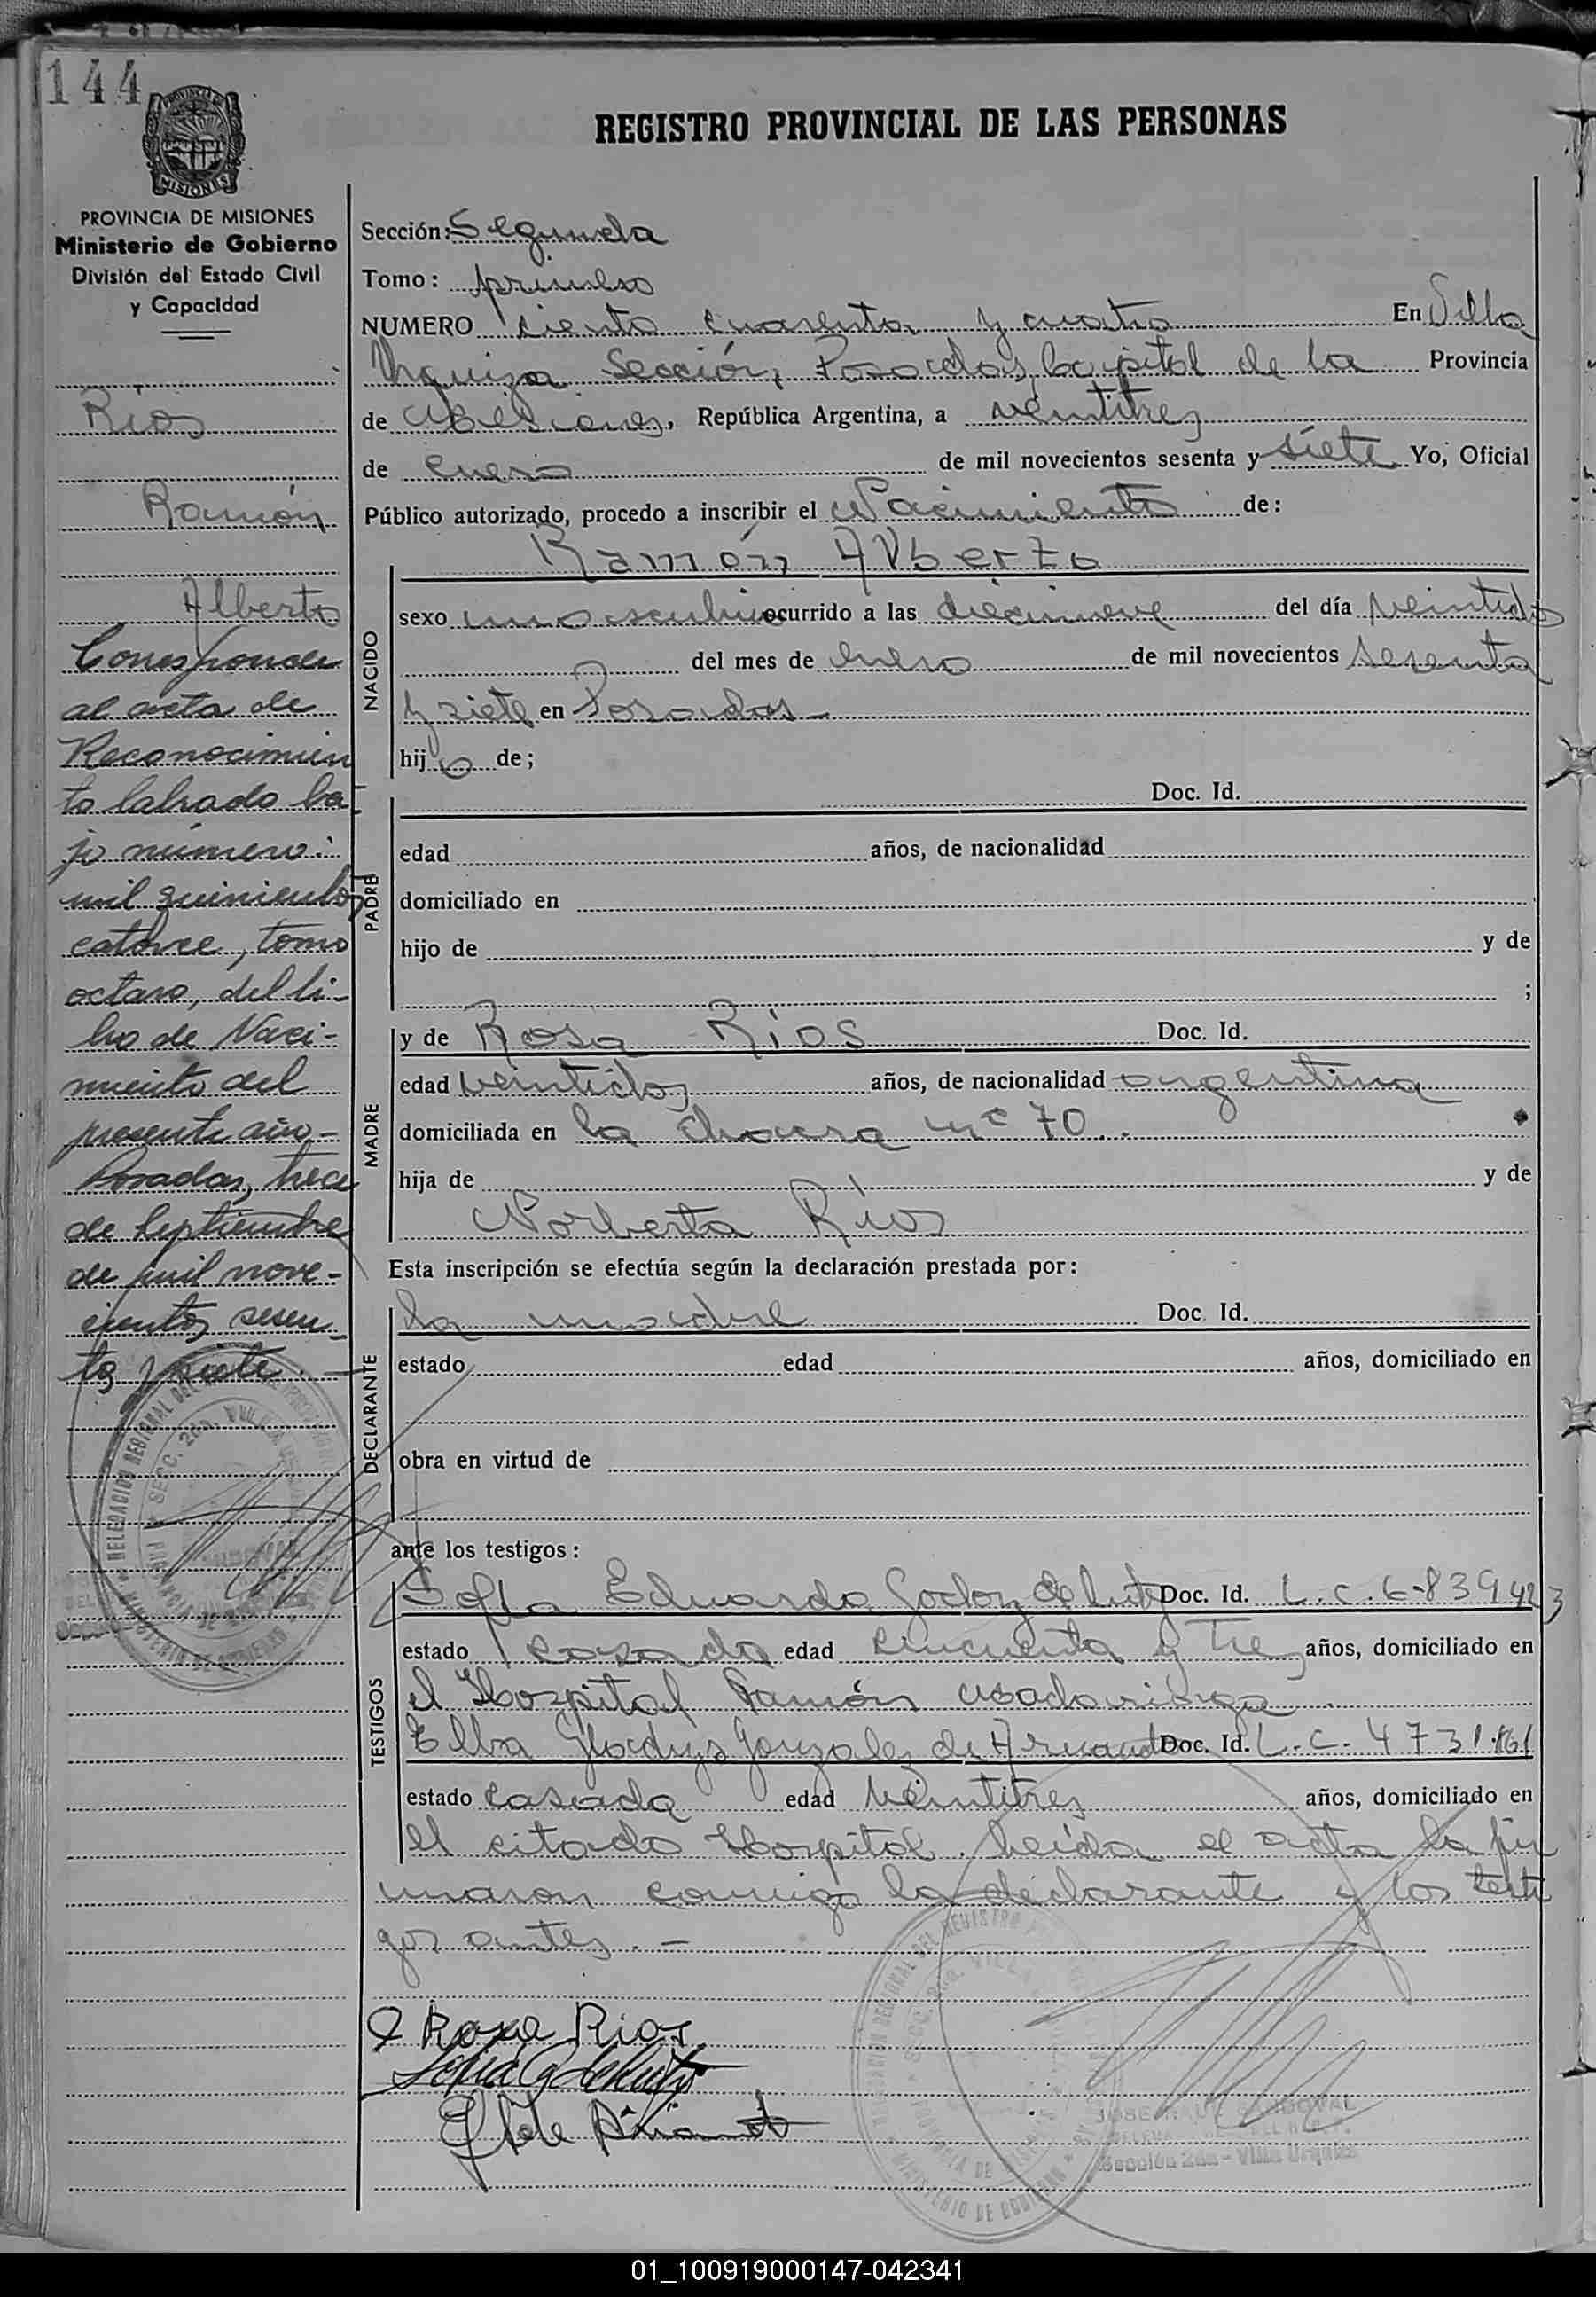 144
PROVINCIA DE MISIONES
Ministerio de Gobierno
División del Estado Civil
y Capacidad
Ríos
Ramón
Alberto
Corresponde
al acta de
Reconocimien
to labrado ba
jo número:
mil quinientos
catorce, tomo
octavo, del li-
bro de Naci-
miento del
presente año.-
Posadas, trece
de Septiembre
de mil nove-
cientos sesen-
ta y siete.-
REGISTRO PROVINCIAL DE LAS PERSONAS
Sección: Segunda
Tomo: primero
NUMERO ciento cuarenta y cuatro En Villa
Urquiza Sección, Posadas, Capital de la Provincia
de Misiones, República Argentina, a veintitres
de enero de mil novecientos sesenta y siete Yo, Oficial
Público autorizado, procedo a inscribir el Nacimiento de:
Ramón Alberto
NACIDO
sexo masculino ocurrido a las diecinueve del día veintidos
del mes de enero de mil novecientos sesenta
y siete en Posadas-
hijo de;
PADRE
Doc. Id.
edad años, de nacionalidad
domiciliado en
hijo de y de
;
MADRE
y de Rosa Ríos Doc. Id.
edad veintidos años, de nacionalidad argentina
domiciliada en la chacra nº 70.
hija de y de
Norberta Ríos
Esta inscripción se efectúa según la declaración prestada por:
DECLARANTE
la madre Doc. Id.
estado edad años, domiciliado en
obra en virtud de
ante los testigos:
TESTIGOS
Sofía Eduarda Godoy de Doc. Id. L.C. 6-839423
estado casada edad cincuenta y tres años, domiciliado en
el Hospital Ramón Madariaga
Elba Gladys Gonzalez de Doc. Id. L.C. 4731.161
estado casada edad veintitres años, domiciliado en
el citado Hospital. Leída el acta la fir
maron conmigo la declarante y los testi
gos antes.-
Rosa Rios
JOSE SANDOVAL
Sección 2da - Villa Urquiza
01_100919000147-042341